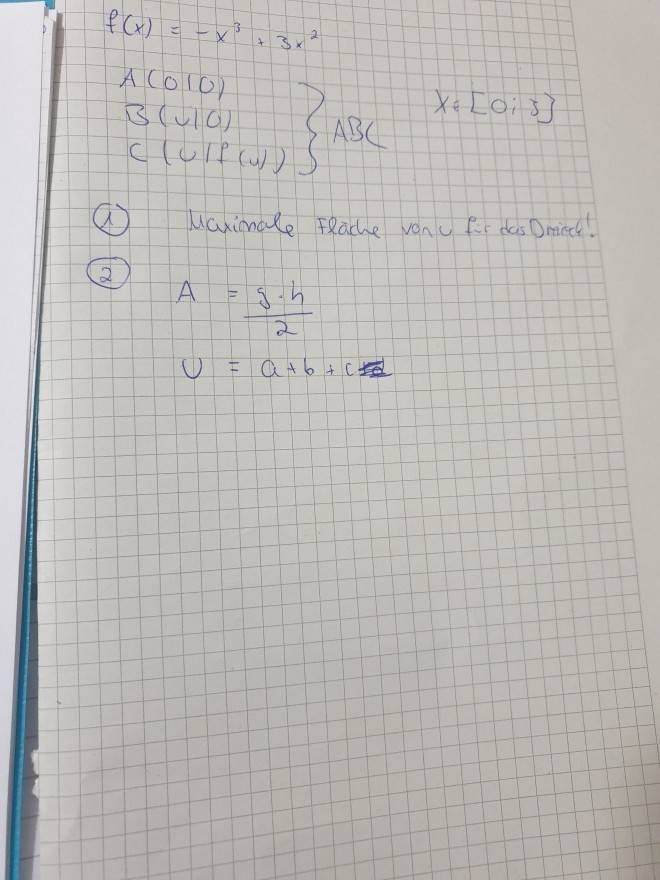 f(x) = -x³ + 3x²
A(0|0)
B(u|0)
C(u|f(u)) } ABC
x ∈ [0; 3]
① Maximale Fläche von u für das Dreieck!
②
A = g·h / 2
U = a + b + c